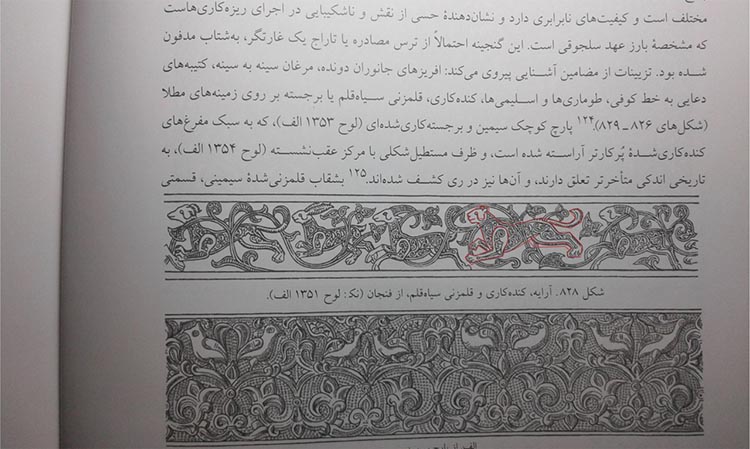 مختلف است و کیفیت‌های نابرابری دارد و نشان‌دهندهٔ حسی از نقش و ناشکیبایی در اجرای ریزه‌کاری‌هاست
که مشخصهٔ بارز عهد سلجوقی است. این گنجینه احتمالاً از ترس مصادره یا تاراج یک غارتگر، به‌شتاب مدفون
شده بود. تزیینات از مضامین آشنایی پیروی می‌کند: افریزهای جانوران دونده، مرغان سینه به سینه، کتیبه‌های
دعایی به خط کوفی، طوماری‌ها و اسلیمی‌ها، کنده‌کاری، قلمزنی سیاه‌قلم یا برجسته بر روی زمینه‌های مطلا
(شکل‌های ۸۲۶ ـ ۸۲۹).۱۲۴ پارچ کوچک سیمین و برجسته‌کاری‌شده‌ای (لوح ۱۳۵۳ الف)، که به سبک مفرغ‌های
کنده‌کاری‌شدهٔ پُرکارتر آراسته شده است، و ظرف مستطیل‌شکلی با مرکز عقب‌نشسته (لوح ۱۳۵۴ الف)، به
تاریخی اندکی متأخرتر تعلق دارند، و آن‌ها نیز در ری کشف شده‌اند.۱۲۵ بشقاب قلمزنی‌شدهٔ سیمینی، قسمتی
شکل ۸۲۸. آرایه، کنده‌کاری و قلمزنی سیاه‌قلم، از فنجان (نک: لوح ۱۳۵۱ الف).